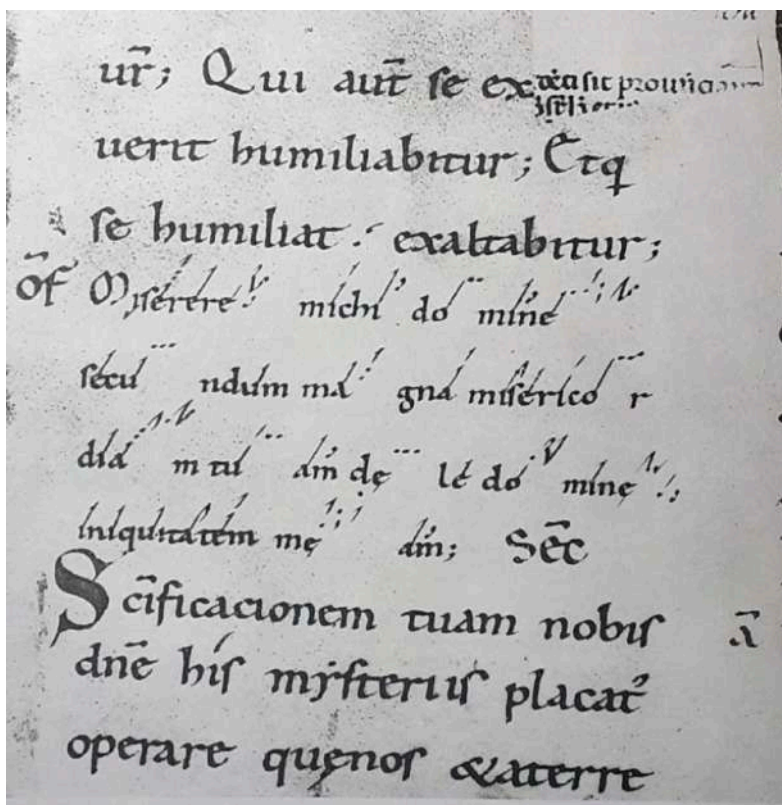 ur̄; Qui aut̄ se ex
uerit humiliabitur; Et q
se humiliat: exaltabitur;
of̄ Miserere michi domine
secu ndum ma gna miserico r
dia m tu am dę le domine
iniquitatem mę am; Sec̄
Sc̄ificacionem tuam nobis
dn̄e his mysteriis placat᾽
operare quęnos & aterre
ā